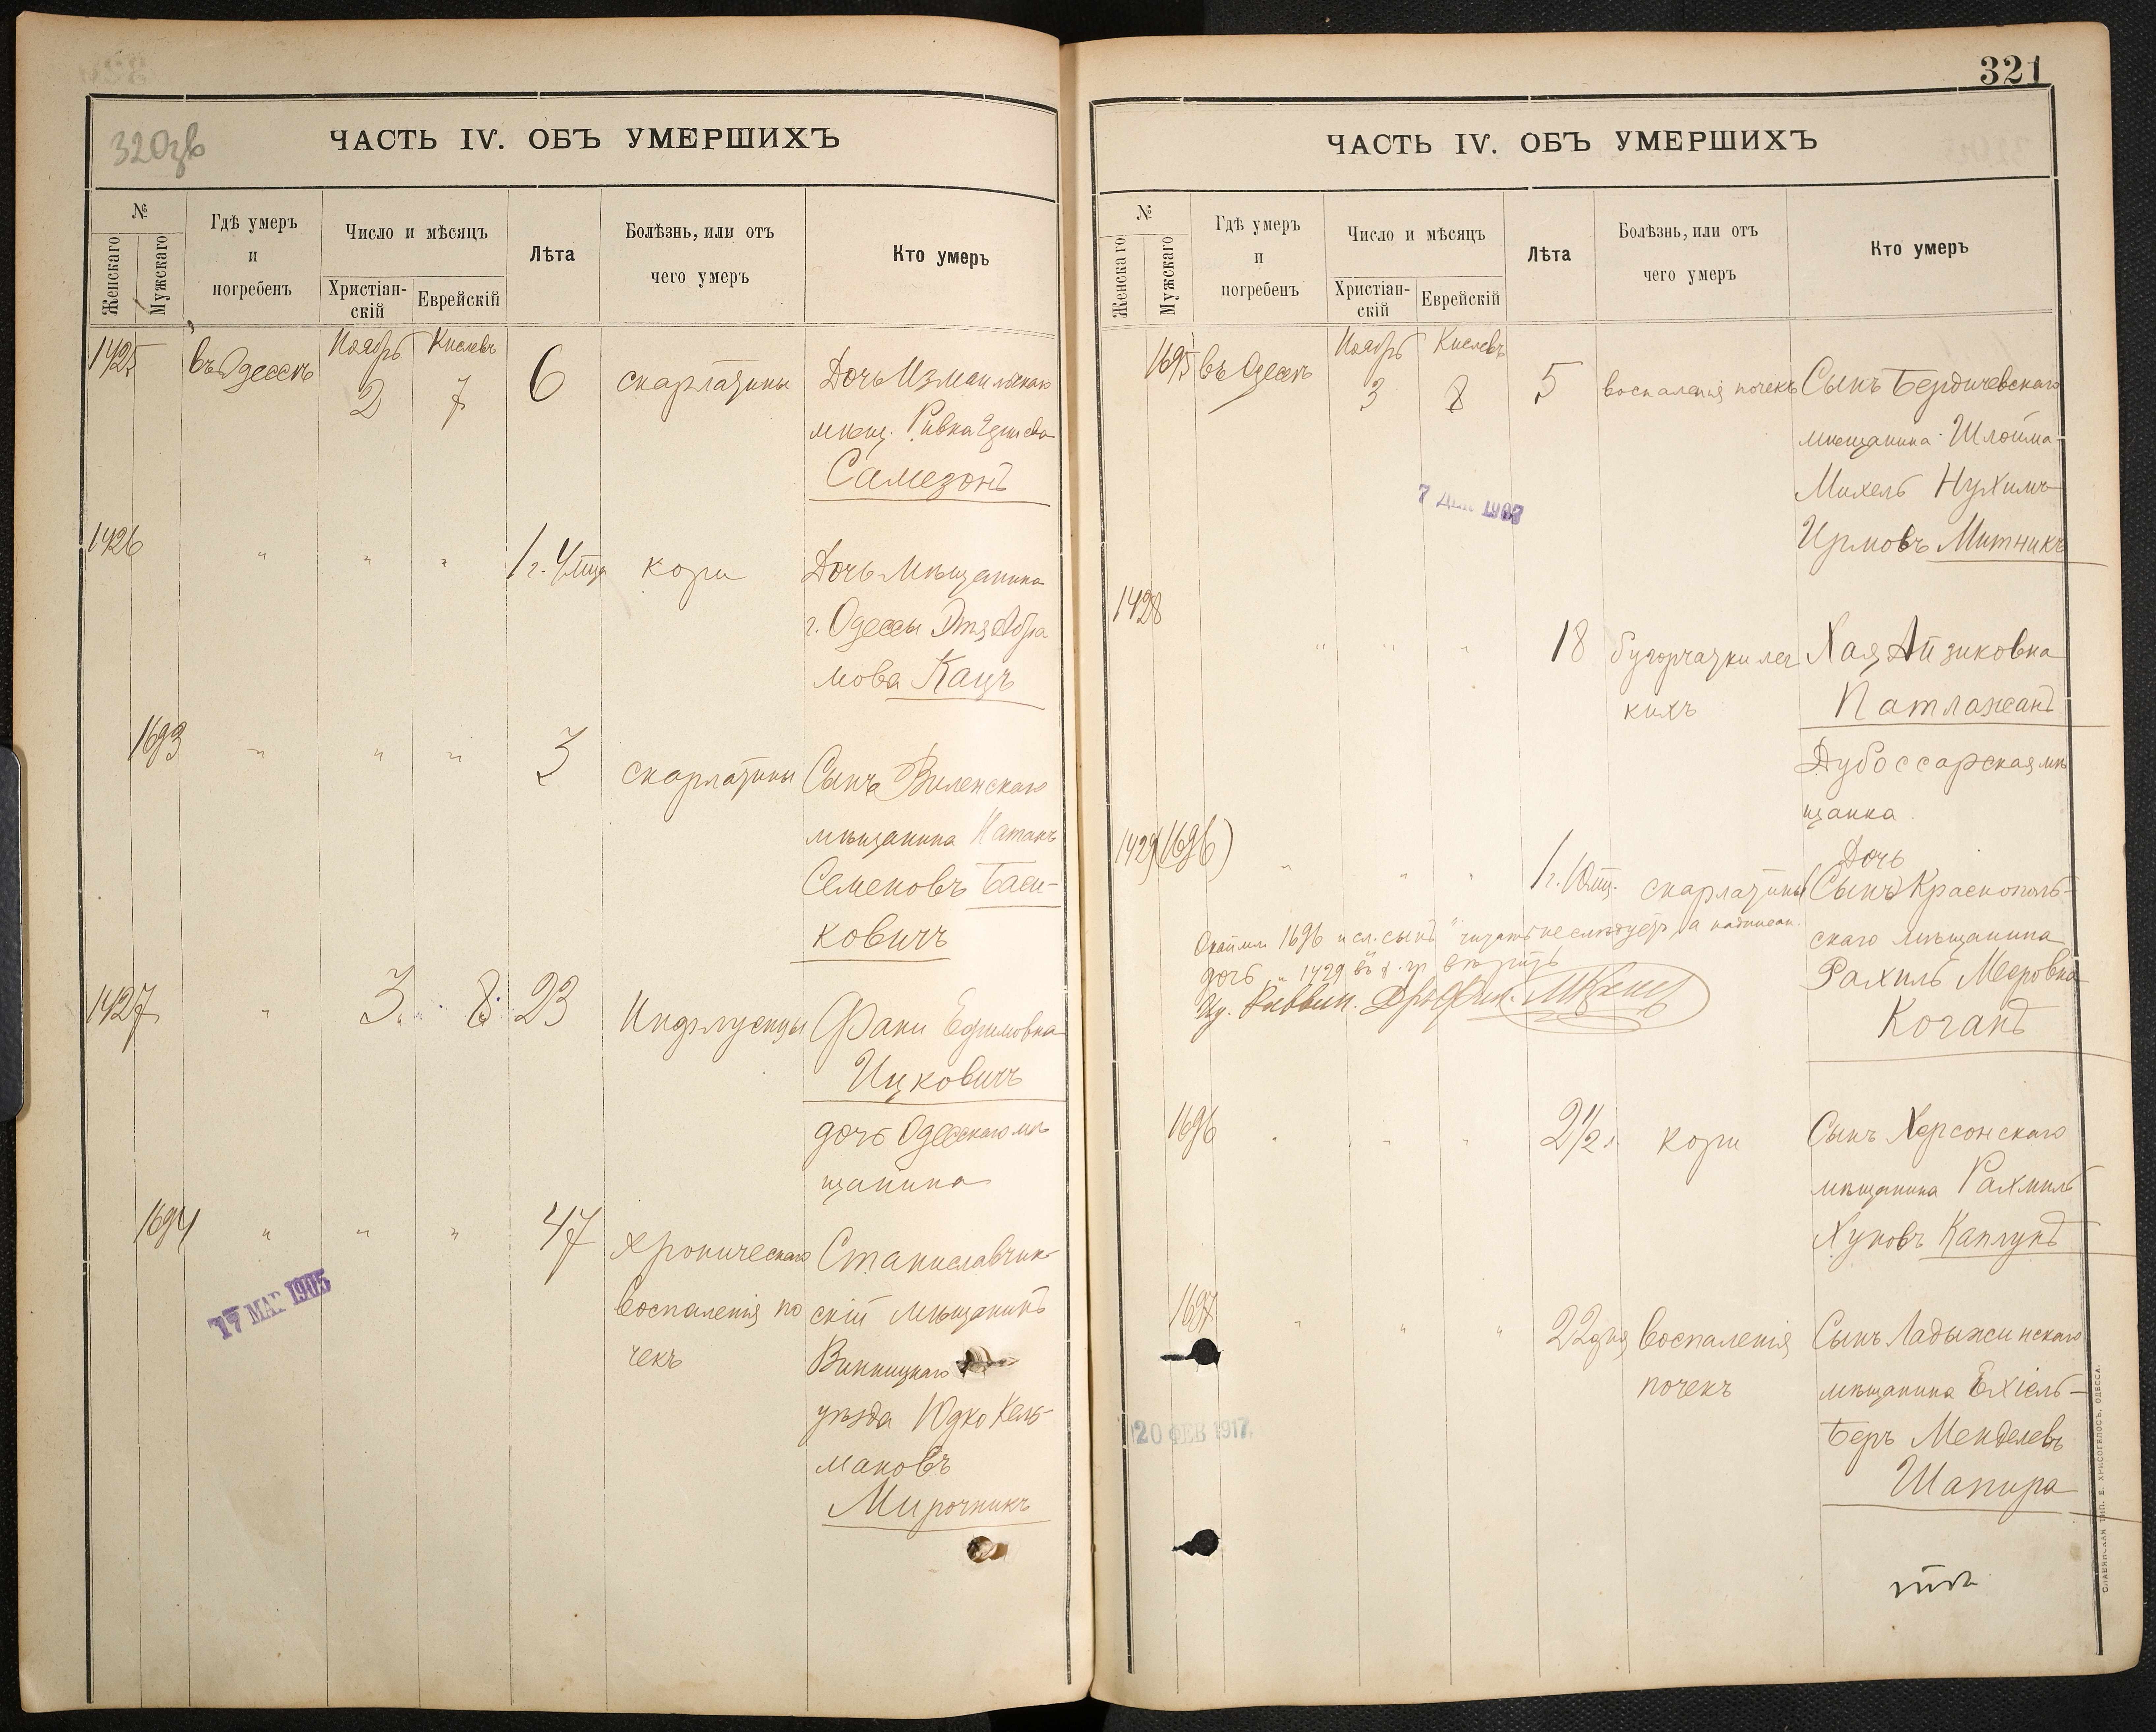 320зв
ЧАСТЬ IV. ОБЪ УМЕРШИХЪ
№
Женскаго
Мужскаго
Гдѣ умеръ
и
погребенъ
Число и мѣсяцъ
Христіан-
скій
Еврейскій
Лѣта
Болѣзнь, или отъ
чего умеръ
Кто умеръ
1425 въ Одессѣ Ноябрь 2 Кислевъ 7 6 скарлатины Дочь Измаильскаго
мѣщ. Ривка
Самезонъ
1426 " " " 1 г. 4 мца кори Дочь Мѣщанина
г. Одессы Этя Абра
мова Кацъ
1693 " " " 3 скарлатины Сынъ Виленскаго
мѣщанина Натанъ
Семеновъ Баси-
ковичъ
1427 " 3 8 23 Инфлуенцы Фани Ефимовна
Ицковичъ
дочь Одесскаго мѣ
щанина
1694 " " " 47 хроническаго Станиславчик-
воспаленія по скій мѣщанинъ
чекъ Винницкаго
уѣзда Юдко Кель-
мановъ
Мирочникъ
17 МАР 1905
321
ЧАСТЬ IV. ОБЪ УМЕРШИХЪ
№
Женскаго
Мужскаго
Гдѣ умеръ
и
погребенъ
Число и мѣсяцъ
Христіан-
скій
Еврейскій
Лѣта
Болѣзнь, или отъ
чего умеръ
Кто умеръ
1695 въ Одессѣ Ноябрь 3 Кислевъ 8 5 воспаленія почекъ Сынъ Бердичевскаго
мѣщанина Шлойма-
Михель Нухимъ-
Ирмовъ Митникъ
7 ДЕК 1907
1428 " " " 18 бугорчатки лег Хая Айзиковна
кихъ Патлажанъ
Дубоссарская мѣ
щанка
1429 (1696) " " " 1 г. 10 мц. скарлатины Дочь
(Сынъ) Краснополь-
скаго мѣщанина
Рахиль Мееровна
Коганъ
1696 и сл. сынъ " читать не слѣдуетъ, а надписан.
дочь " 1429 вѣрить
Раввин.
1696 " " " 2 1/2 г. кори Сынъ Херсонскаго
мѣщанина Рахмиль
Хуновъ Каплунъ
1697 " " " 22 дня воспаленія Сынъ Ладыжинскаго
почекъ мѣщанина Ехіель-
Беръ Менделевъ
Шапира
20 ФЕВ 1917
СЛАВЯНСКАЯ ТИП. Е. ХРИСОГЕЛОСЪ, ОДЕССА.